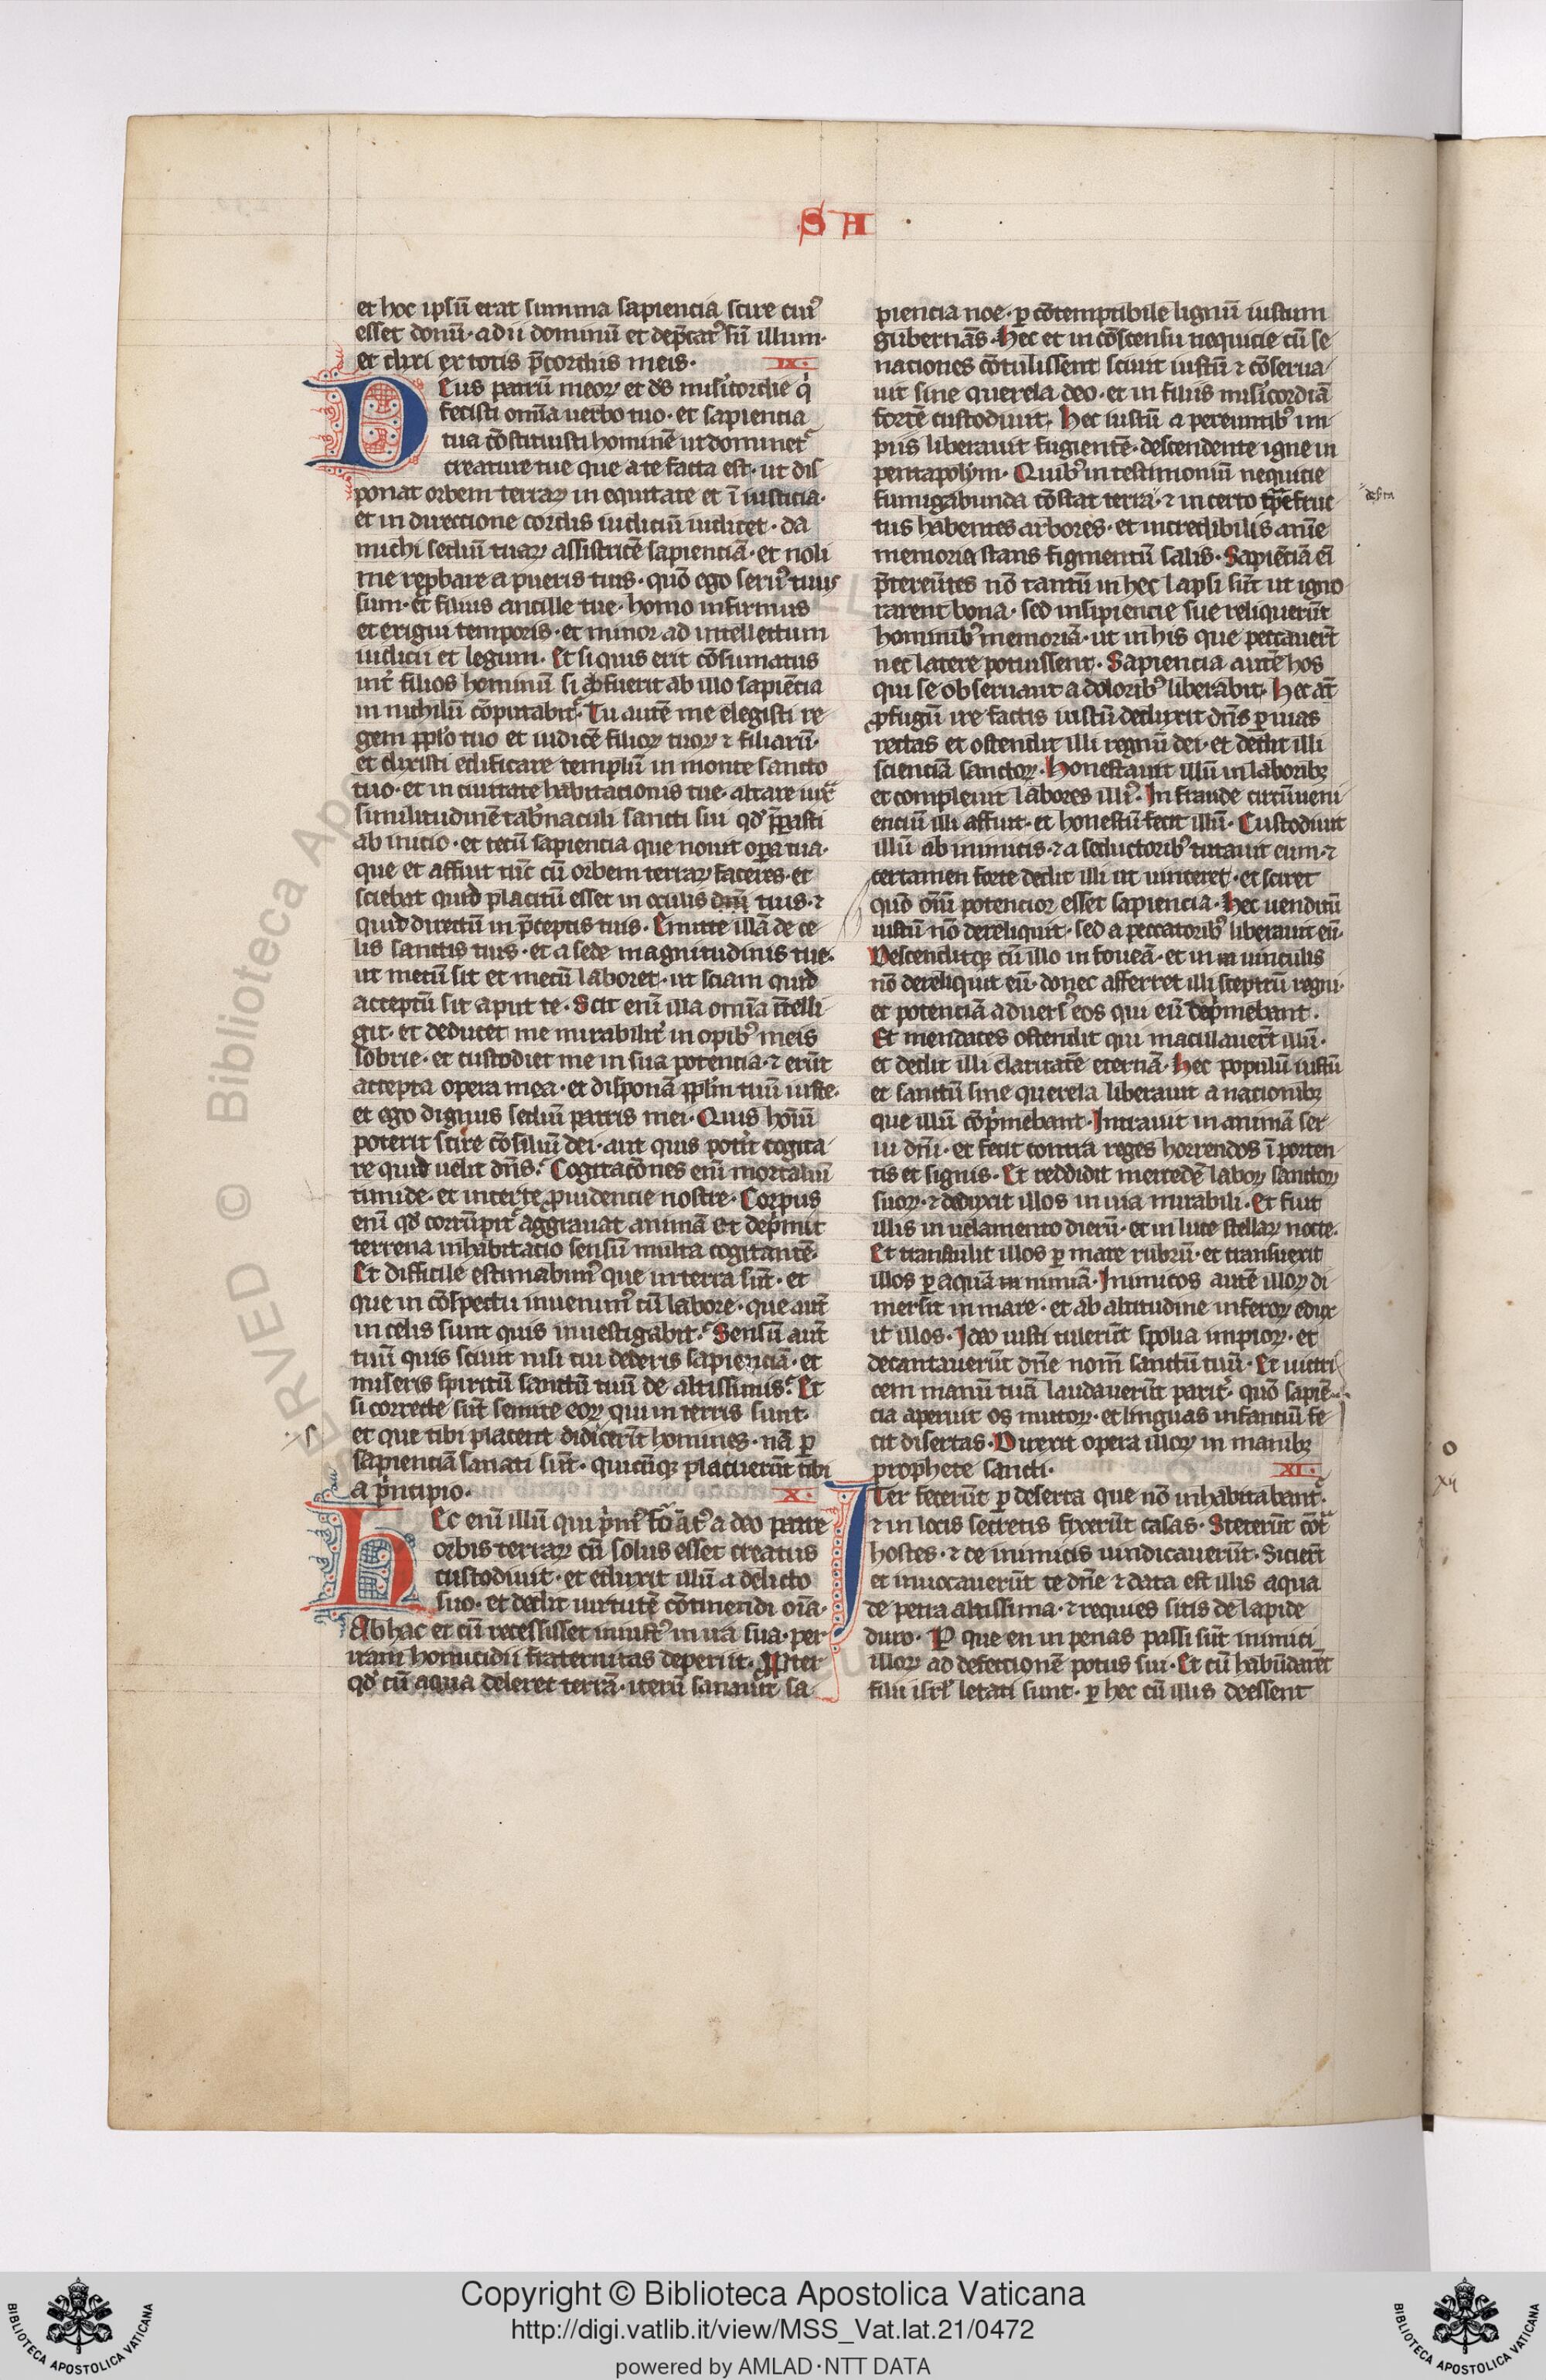 S A
et hoc ipsū erat summa sapiencia scire cuiꝰ
esset donū· adii dominū et dep̄catꝰ sū illum·
et dixi ex totis p̄cordiis meis· IX·
DEus patrū meoꝝ et ds̄ misicordie q̇
fecisti om̄ia uerbo tuo· et sapiencia
tua cōstituisti hominē ut dominet᷑
creature tue que a te facta est· ut dis
ponat orbem terraꝝ in equitate et ī iusticia·
et in directione cordis iudiciū iudicet· da
michi sediū tuaꝝ assistricē sapienciā· et noli
me rep̱bare a pueris tuis· quō ego seruꝰ tuus
sum· et filius ancille tue· homo infirmus
et exigui temporis· et minor ad intellectum
iudicii et legum· Et si quis erit cōsumatus
int̄ filios hominū si ab fuerit ab illo sapiētia
in nichilū cōputabit᷑· Tu autē me elegisti re
gem pp̄lo tuo et iudicē filioꝝ tuoꝝ ⁊ filiarū·
et dixisti edificare templū in monte sancto
tuo· et in ciuitate habitacionis tue· altare iux̄
similitudinē tab̄naculi sancti sui qd̄ p̄parasti
ab inicio· et tecū sapiencia que nouit oꝑa tua·
que et affuit tūc cū orbem terraꝝ faceres· et
sciebat quid placitū esset in oculis tuis· ⁊
quid directū in p̄ceptis tuis· Emitte illā de ce
lis sanctis tuis· et a sede magnitudinis tue·
ut mecū sit et mecū laboret· ut sciam quid
acceptū sit aput te· Scit enī illa om̄ia ītelli
git· et deducet me mirabilit̄ in opibꝰ meis
sobrie· et custodiet me in sua potencia· ⁊ erūt
accepta opera mea· et disponā pp̄lm tuū iuste·
et ego dignus sediū patris mei· Quis hoīū
poterit scire cōsiliū dei· aut quis pot̄it cogita
re quid uelit dn̄s· Cogitacōnes enī mortaliū
timide· et incerte ꝓuidencie nostre· Corpus
enī qd̄ corrūpit᷑ aggrauat animā et dep̄mit
terrena inhabitatio sensū multa cogitantē·
Et difficile estimabimꝰ que in terra sūt· et
que in cōspectu inuenimꝰ cū labore· que aut̄
in celis sunt quis inuestigabit· Sensū aut̄
tuū quis sciuit nisi tu dederis sapienciā· et
miseris spiritū sanctū tuū de altissimis· Et
si correcte sūt semite eoꝝ qui in terris sunt·
et que tibi placent didicerīt homines· nā ꝑ
sapienciā sanati sūt· quicūqꝫ placuerūt tibi
a p̄ncipio· X·
HEc enī illū qui p̄mꝰ for̄atꝰ a deo patre
orbis terraꝝ cū solus esset creatus
custodiuit· et eduxit illū a delicto
suo· et dedit uirtutē cōtinendi oīa·
Ab hac et cū recessisset iniustꝰ in ira sua· per
iram homicidii fraternitas deperiit· Propter
qd̄ cū aqua deleret terrā· iterū sanauit sa
piencia noe· ꝑ cōtemptibile lignū iustum
gubernās· Hec et in cōscensu nequicie cū se
naciones cōtulissent sciuit iustū ⁊ cōserua
uit sine querela deo· et in filiis misicordiā
fortē custodiuit· Hec iustū a pereuntibꝰ im
piis liberauit fugientē· descendente igne in
pentapolym· Quibꝰ in testimoniū nequicie
fumigabunda cōstat terra· ⁊ incerto tp̄e fruc
tus habentes arbores· et incredibilis anīe
memoria stans figmentū salis· Sapiētiā eī
p̄tereūtes nō tantū in hec lapsi sūt ut igno
rarent bona· sed insipiencie sue reliquerūt
hominibꝰ memoriā· ut in his que peccauer̄t
nec latere potuissent· Sapiencia autē hos
qui se obseruant a doloribꝰ liberabit· Hec at̄
ꝓfugū ire fratris iustū deduxit dn̄s ꝑ uias
rectas et ostendit illi regnū dei· et dedit illi
scienciā sanctoꝝ· Honestauit illū in laboribꝫ
et compleuit labores illiꝰ· In fraude circūueni
enciū illi affuit· et honestū fecit illū· Custodiuit
illū ab inimicis· ⁊ a seductoribꝰ tutauit eum· ⁊
certamen forte dedit illi ut uinceret· et sciret
quō om̄iū potencior esset sapiencia· Hec uenditū
iustū nō dereliquit· sed a peccatoribꝰ liberauit eū·
Descenditqꝫ cū illo in foueā· et in uinculis
nō dereliquit eū· donec afferret illi sceptrū regni·
et potenciā aduersꝰ eos qui eū dep̄mebant·
Et mendaces ostendit qui maculauer̄t illū·
et dedit illi claritatē eternā· Hec populū iustū
et sanctū sine querela liberauit a nacionibꝫ
que illū cōp̄mebant· Intrauit in animā ser
ui dn̄i· et stetit contra reges horrendos ī porten
tis et signis· Et reddidit mercedē laboꝝ sanctoꝝ
suoꝝ· ⁊ deduxit illos in uia mirabili· Et fuit
illis in uelamento dierū· et in luce stellaꝝ nocte·
Et transtulit illos ꝑ mare rubrū· et transuexit
illos ꝑ aquā nimiā· Inimicos autē illoꝝ di
mersit in mare· et ab altitudine inferoꝝ edux
it illos· Ideo iusti tulerūt spolia impioꝝ· et
decantauerūt dn̄e nom̄ sanctū tuū· Et uictri
cem manū tuā laudauerūt parit̄· quō sapiē
cia aperuit os mutoꝝ· et linguas infantiū fe
cit disertas· Direxit opera illoꝝ in manibꝫ
prophete sancti· XI·
ITer fecerūt ꝑ deserta que nō inhabitabant᷑·
⁊ in locis secretis fixerūt casas· Steterūt cōt᷑
hostes· ⁊ de inimicis uindicauerūt· Sicier̄t
et inuocauerūt te dn̄e ⁊ data est illis aqua
de petra altissima· ⁊ requies sitis de lapide
duro· P que en in penas passi sūt inimici
illoꝝ ad defectionē potus sui· Et cū habūdarēt
filii isrl̄ letati sunt· ꝑ hec cū illis deessent
© Biblioteca Apo
ERVED
Copyright © Biblioteca Apostolica Vaticana
http://digi.vatlib.it/view/MSS_Vat.lat.21/0472
powered by AMLAD·NTT DATA
BIBLIOTECA APOSTOLICA VATICANA
BIBLIOTECA APOSTOLICA VATICANA